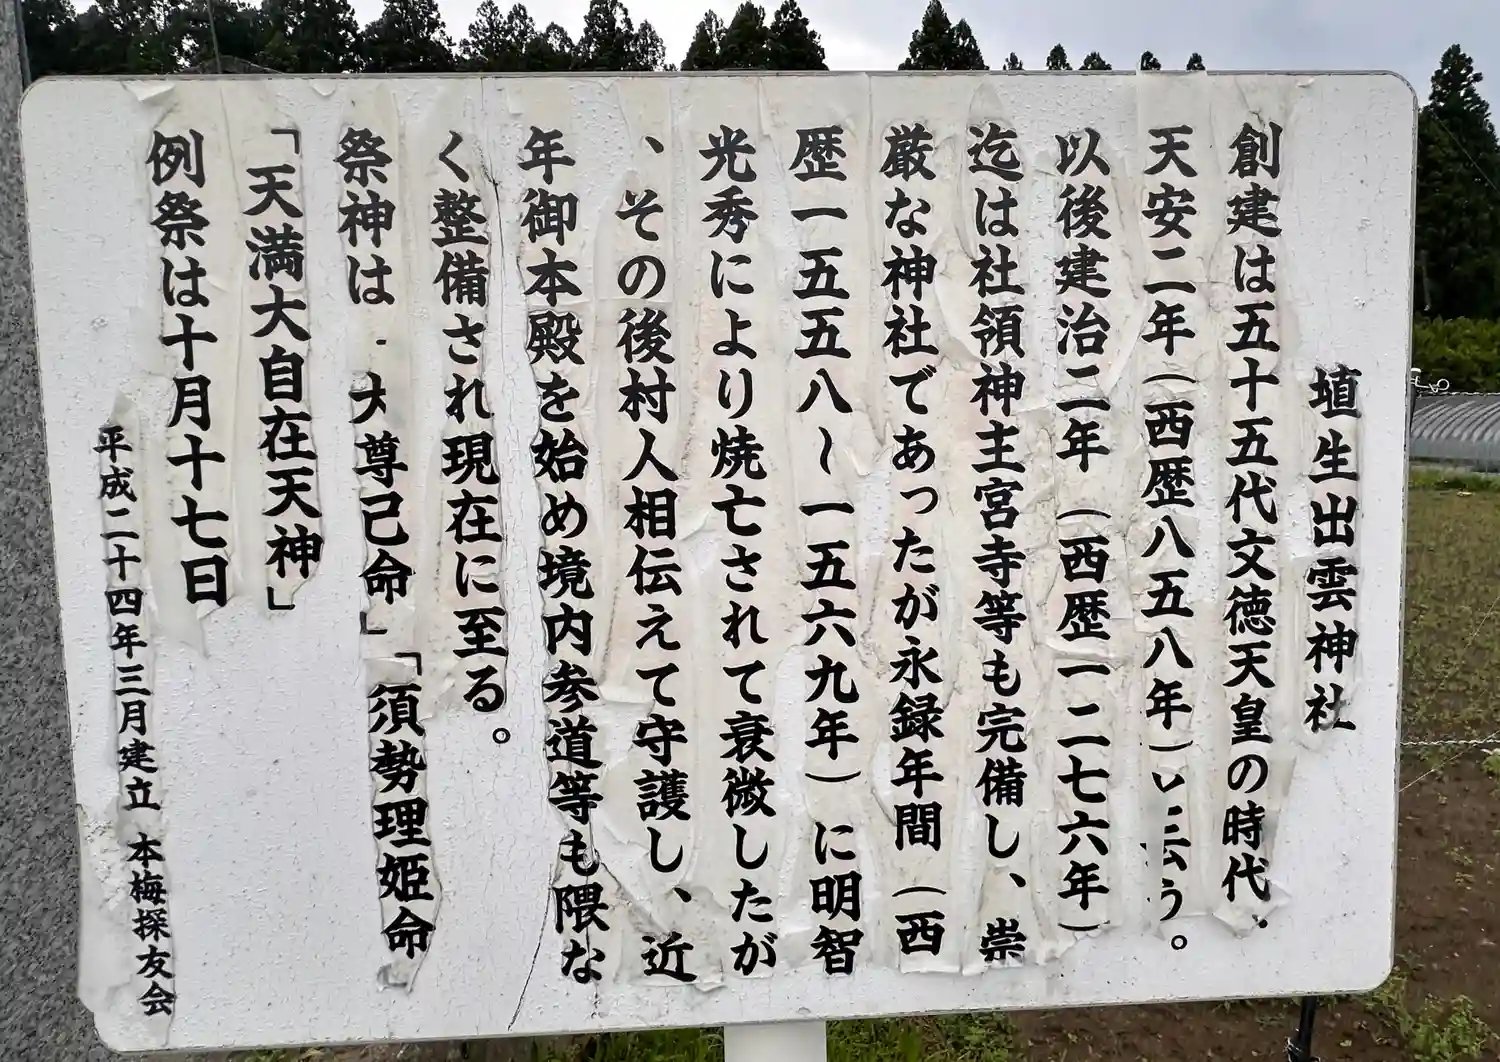 埴生出雲神社
創建は五十五代文徳天皇の時代、
天安二年（西歴八五八年）と云う。
以後建治二年（西歴一二七六年）
迄は社領神主宮寺等も完備し、崇
厳な神社であったが永録年間（西
歴一五五八～一五六九年）に明智
光秀により焼亡されて衰微したが
、その後村人相伝えて守護し、近
年御本殿を始め境内参道等も隈な
く整備され現在に至る。
祭神は 大 尊己命」「須勢理姫命
「天満大自在天神」
例祭は十月十七日
平成二十四年三月建立 本梅探友会